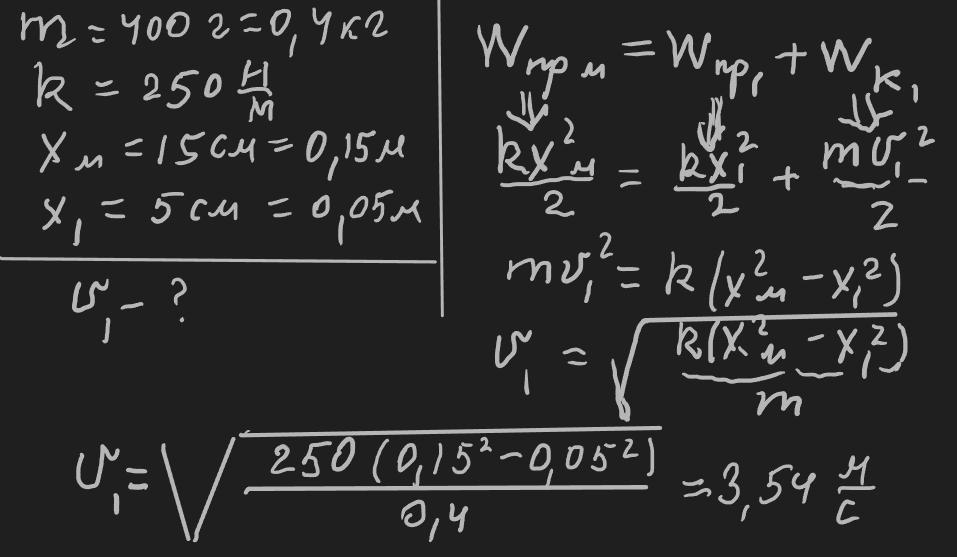 m = 400 г = 0,4 кг
k = 250 Н/м
xₘ = 15 см = 0,15 м
x₁ = 5 см = 0,05 м
υ₁ – ?
Wпрₘ = Wпр₁ + Wк₁
kxₘ²/2 = kx₁²/2 + mυ₁²/2
mυ₁² = k(xₘ² – x₁²)
υ₁ = √(k(xₘ² – x₁²)/m)
υ₁ = √(250(0,15² – 0,05²)/0,4) = 3,54 м/с